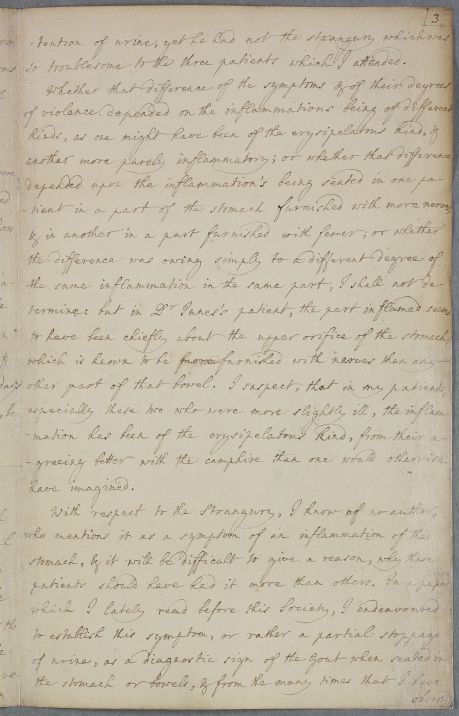 [3
-tention of urine, yet he had not the strangury which was
so troublesome to the three patients which I attended.
Whether that difference of the symptoms & of their degrees
of violence depended on the inflammations being of different
kinds, as one might have been of the erysipelatous kind, &
another more purely inflammatory; or whether that difference
depended upon the inflammation's being seated in one pa-
-tient in a part of the stomach furnished with more nerves
& in another in a part furnished with fewer; or whether
the difference was owing simply to a different degree of
the same inflammation in the same part, I shall not de-
termine: but in Dr Innes's patient, the part inflamed seems
to have been chiefly about the upper orifice of the stomach,
which is known to be more furnished with nerves than any
other part of that bowel. I suspect, that in my patients,
especially these two who were more slightly ill, the inflam-
-mation has been of the erysipelatous kind, from their a-
-greeing better with the camphire than one would otherwise
have imagined.
With respect to the Strangury, I know of no author,
who mentions it as a symptom of an inflammation of the
stomach, & it will be difficult to give a reason, why these
patients should have had it more than others. In a paper
which I lately read before this Society, I endeavoured
to establish this symptom, or rather a partial stoppage
of urine, as a diagnostic sign of the Gout when seated in
the stomach or bowels, & from the many times that I have